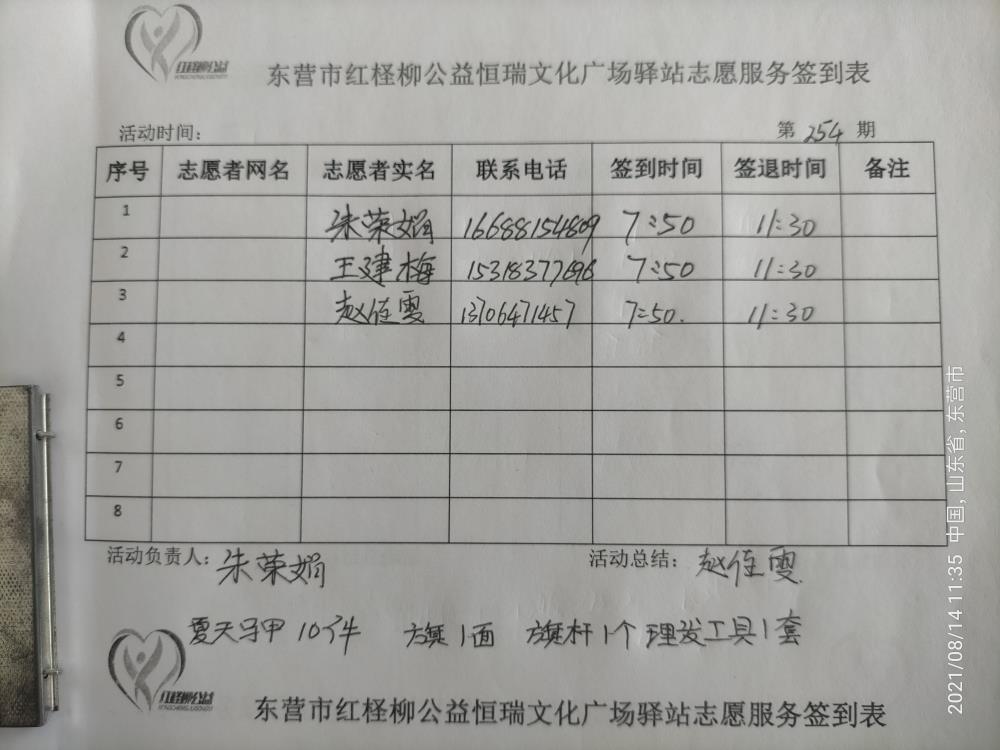 红柽柳公益
东营市红柽柳公益恒瑞文化广场驿站志愿服务签到表
活动时间： 第 254 期
序号 志愿者网名 志愿者实名 联系电话 签到时间 签退时间 备注
1 朱荣娟 16688154809 7:50 11:30
2 王建梅 15318377696 7:50 11:30
3 赵佳雯 13706471457 7:50. 11:30
4
5
6
7
8
活动负责人： 朱荣娟 活动总结： 赵佳雯
夏天马甲 10件 旗 1面 旗杆 1个 理发工具 1套
红柽柳公益
东营市红柽柳公益恒瑞文化广场驿站志愿服务签到表
2021/08/14 11:35 中国, 山东省, 东营市